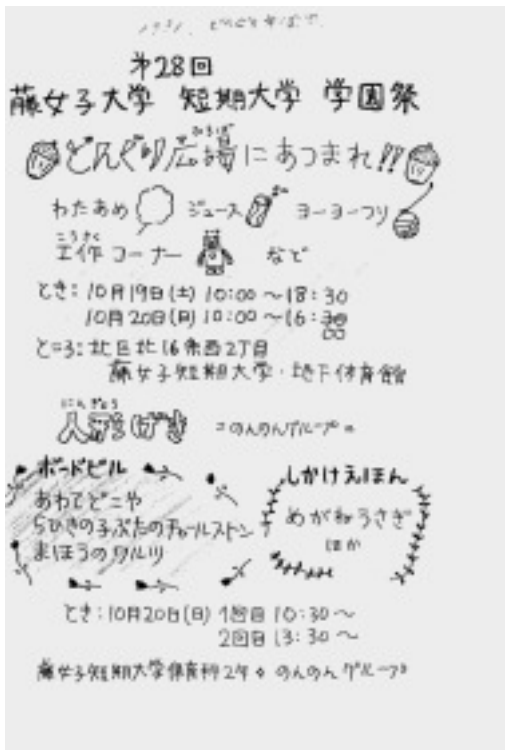 第28回
藤女子大学 短期大学 学園祭
ひろば
どんぐり広場にあつまれ!!
わたあめ ジュース ヨーヨーつり
こうさく
工作コーナー など
とき:10月19日(土) 10:00〜18:30
10月20日(日) 10:00〜16:
ところ:北区北16条西2丁目
藤女子短期大学・地下体育館
にんぎょう
人形げき =のんのんグループ=
ボードビル
あわてどこや
5ひきの子ぶたのチャールストン
まほうのワルツ
しかけえほん
めがねうさぎ
ほか
とき:10月20日(日) 1回目 10:30〜
2回目 13:30〜
藤女子短期大学保育科2年 のんのんグループ